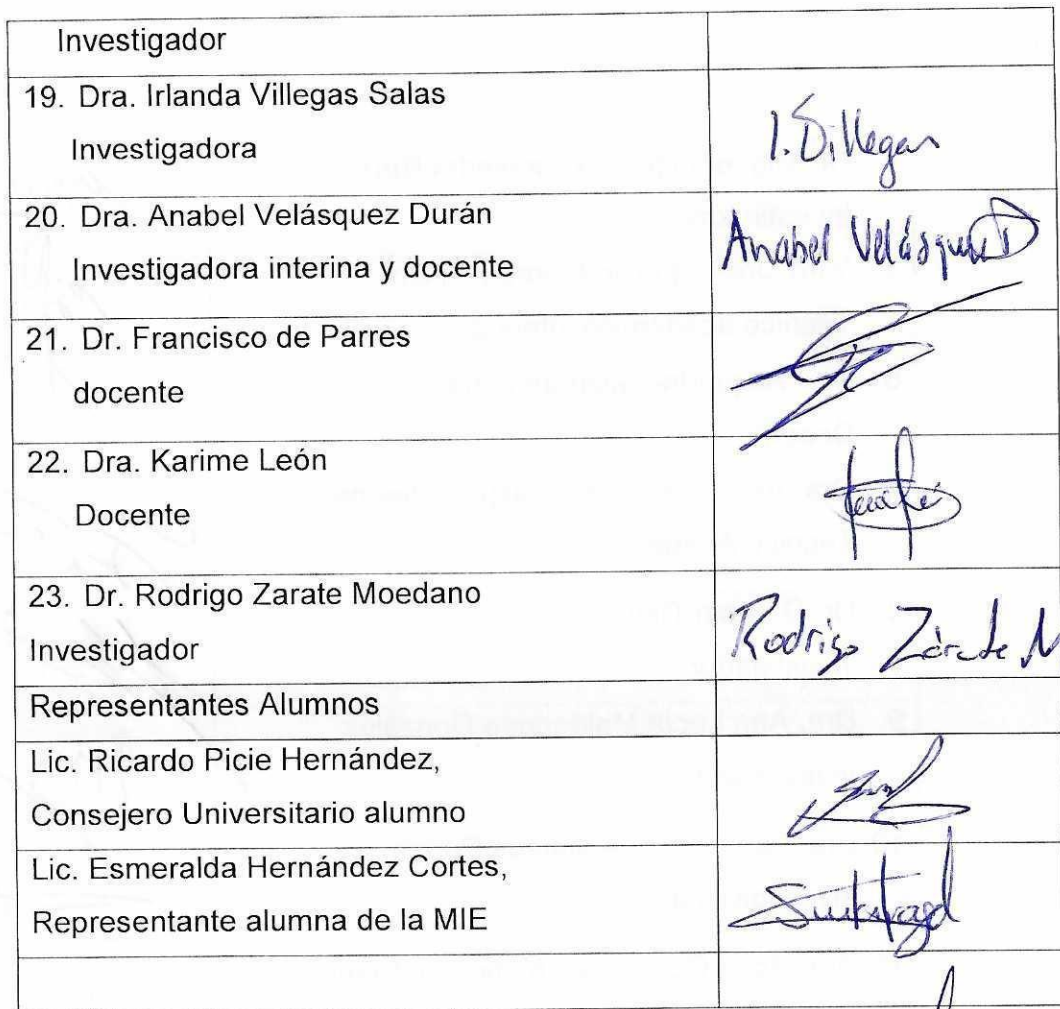 Investigador
19. Dra. Irlanda Villegas Salas
Investigadora
I. Villegas
20. Dra. Anabel Velásquez Durán
Investigadora interina y docente
Anabel Velásquez D
21. Dr. Francisco de Parres
docente
22. Dra. Karime León
Docente
23. Dr. Rodrigo Zarate Moedano
Investigador
Rodrigo Zárate M
Representantes Alumnos
Lic. Ricardo Picie Hernández,
Consejero Universitario alumno
Lic. Esmeralda Hernández Cortes,
Representante alumna de la MIE